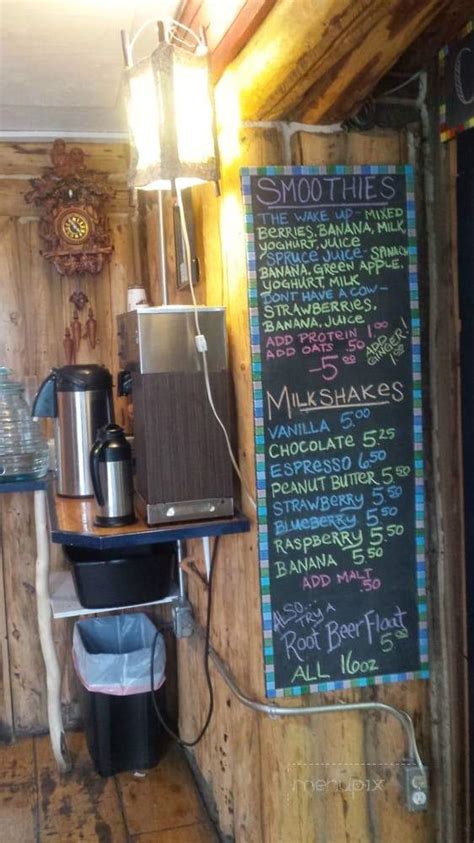 SMOOTHIES
THE WAKE UP - MIXED
BERRIES, BANANA, MILK,
YOGHURT, JUICE
SPRUCE JUICE - SPINACH
BANANA, GREEN APPLE,
YOGHURT, MILK
DONT HAVE A COW -
STRAWBERRIES,
BANANA, JUICE
ADD PROTEIN 1.00
ADD OATS .50
ADD GINGER!
-5.00
MILKSHAKES
VANILLA 5.00
CHOCOLATE 5.25
ESPRESSO 6.50
PEANUT BUTTER 5.50
STRAWBERRY 5.50
BLUEBERRY 5.50
RASPBERRY 5.50
BANANA 5.50
ADD MALT .50
ALSO TRY A
Root Beer Float
5.00
ALL 16oz
menupix